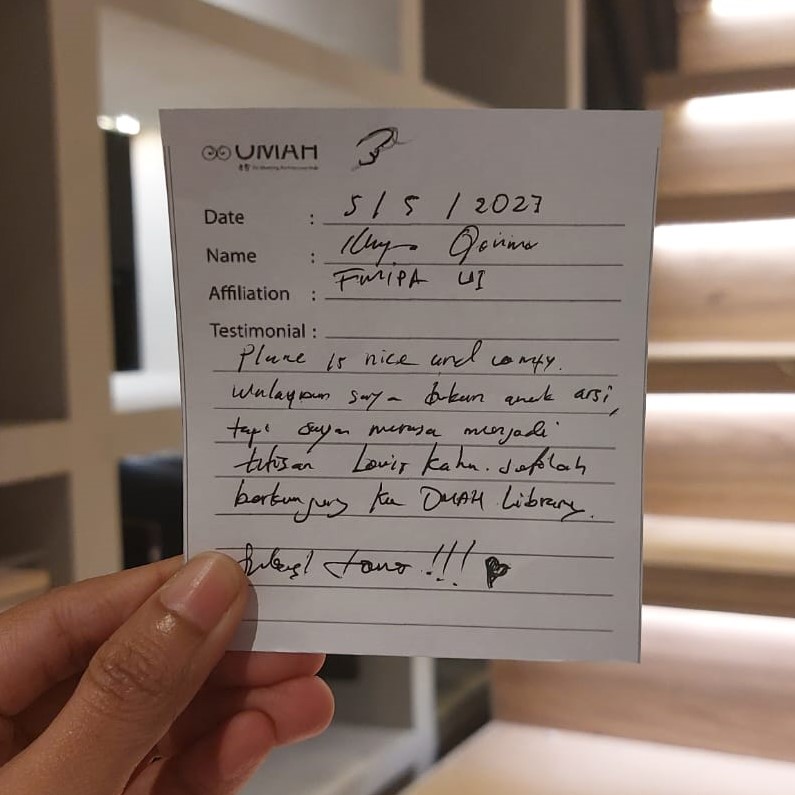 OMAH
Date : 5 / 5 / 2023
Name : Qorina
Affiliation : FMIPA UI
Testimonial :
Place is nice and comfy.
walaupun saya bukan anak arsi,
tapi saya merasa menjadi
titisan Louis Kahn. setelah
berkunjung ke OMAH Library.
!!!